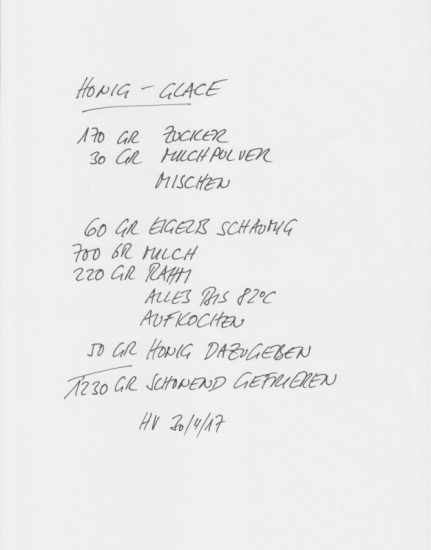 HONIG - GLACE
170 GR ZUCKER
30 GR MILCHPULVER
MISCHEN
60 GR EIGELB SCHAUMIG
700 GR MILCH
220 GR RAHM
ALLES BIS 82°C
AUFKOCHEN
50 GR HONIG DAZUGEBEN
1230 GR SCHONEND GEFRIEREN
HV 30/4/17